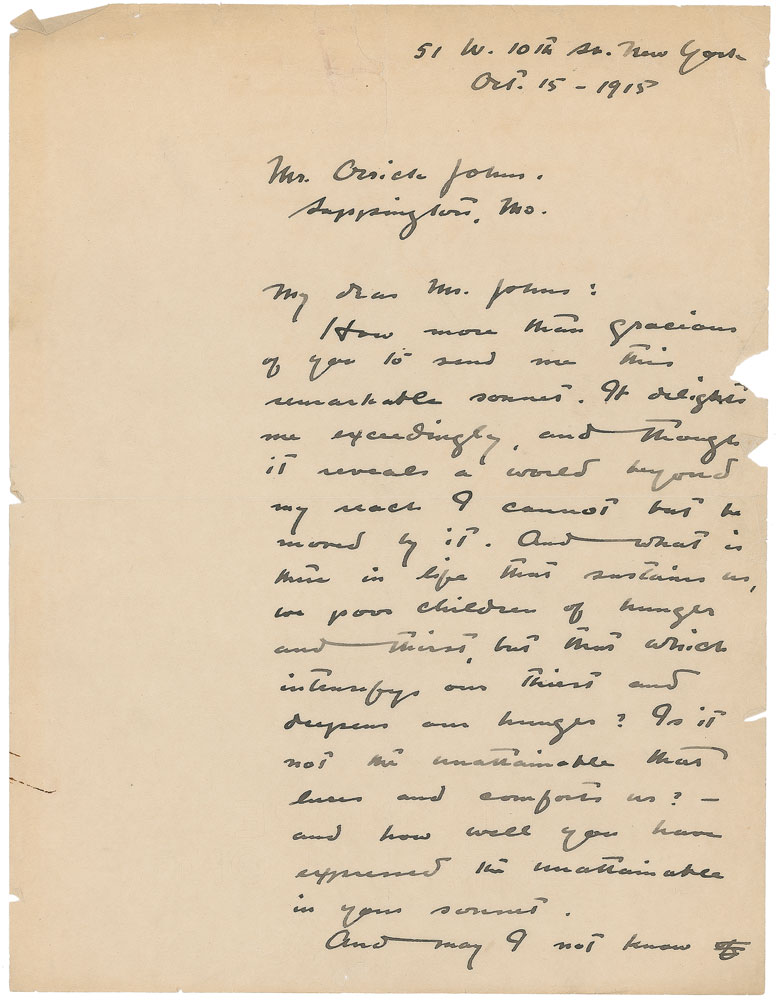 51 W. 10th St. New York
Oct. 15 - 1915
Mr. Orrick Johns.
Sappington, Mo.
My dear Mr. Johns:
How more than gracious
of you to send me this
remarkable sonnet. It delights
me exceedingly, and though
it reveals a world beyond
my reach I cannot but be
moved by it. And what is
there in life that sustains us,
we poor children of hunger
and thirst, but that which
intensifys our thirst and
deepens our hunger? Is it
not the unattainable that
lures and comforts us? —
and how well you have
expressed the unattainable
in your sonnet.
And may I not know